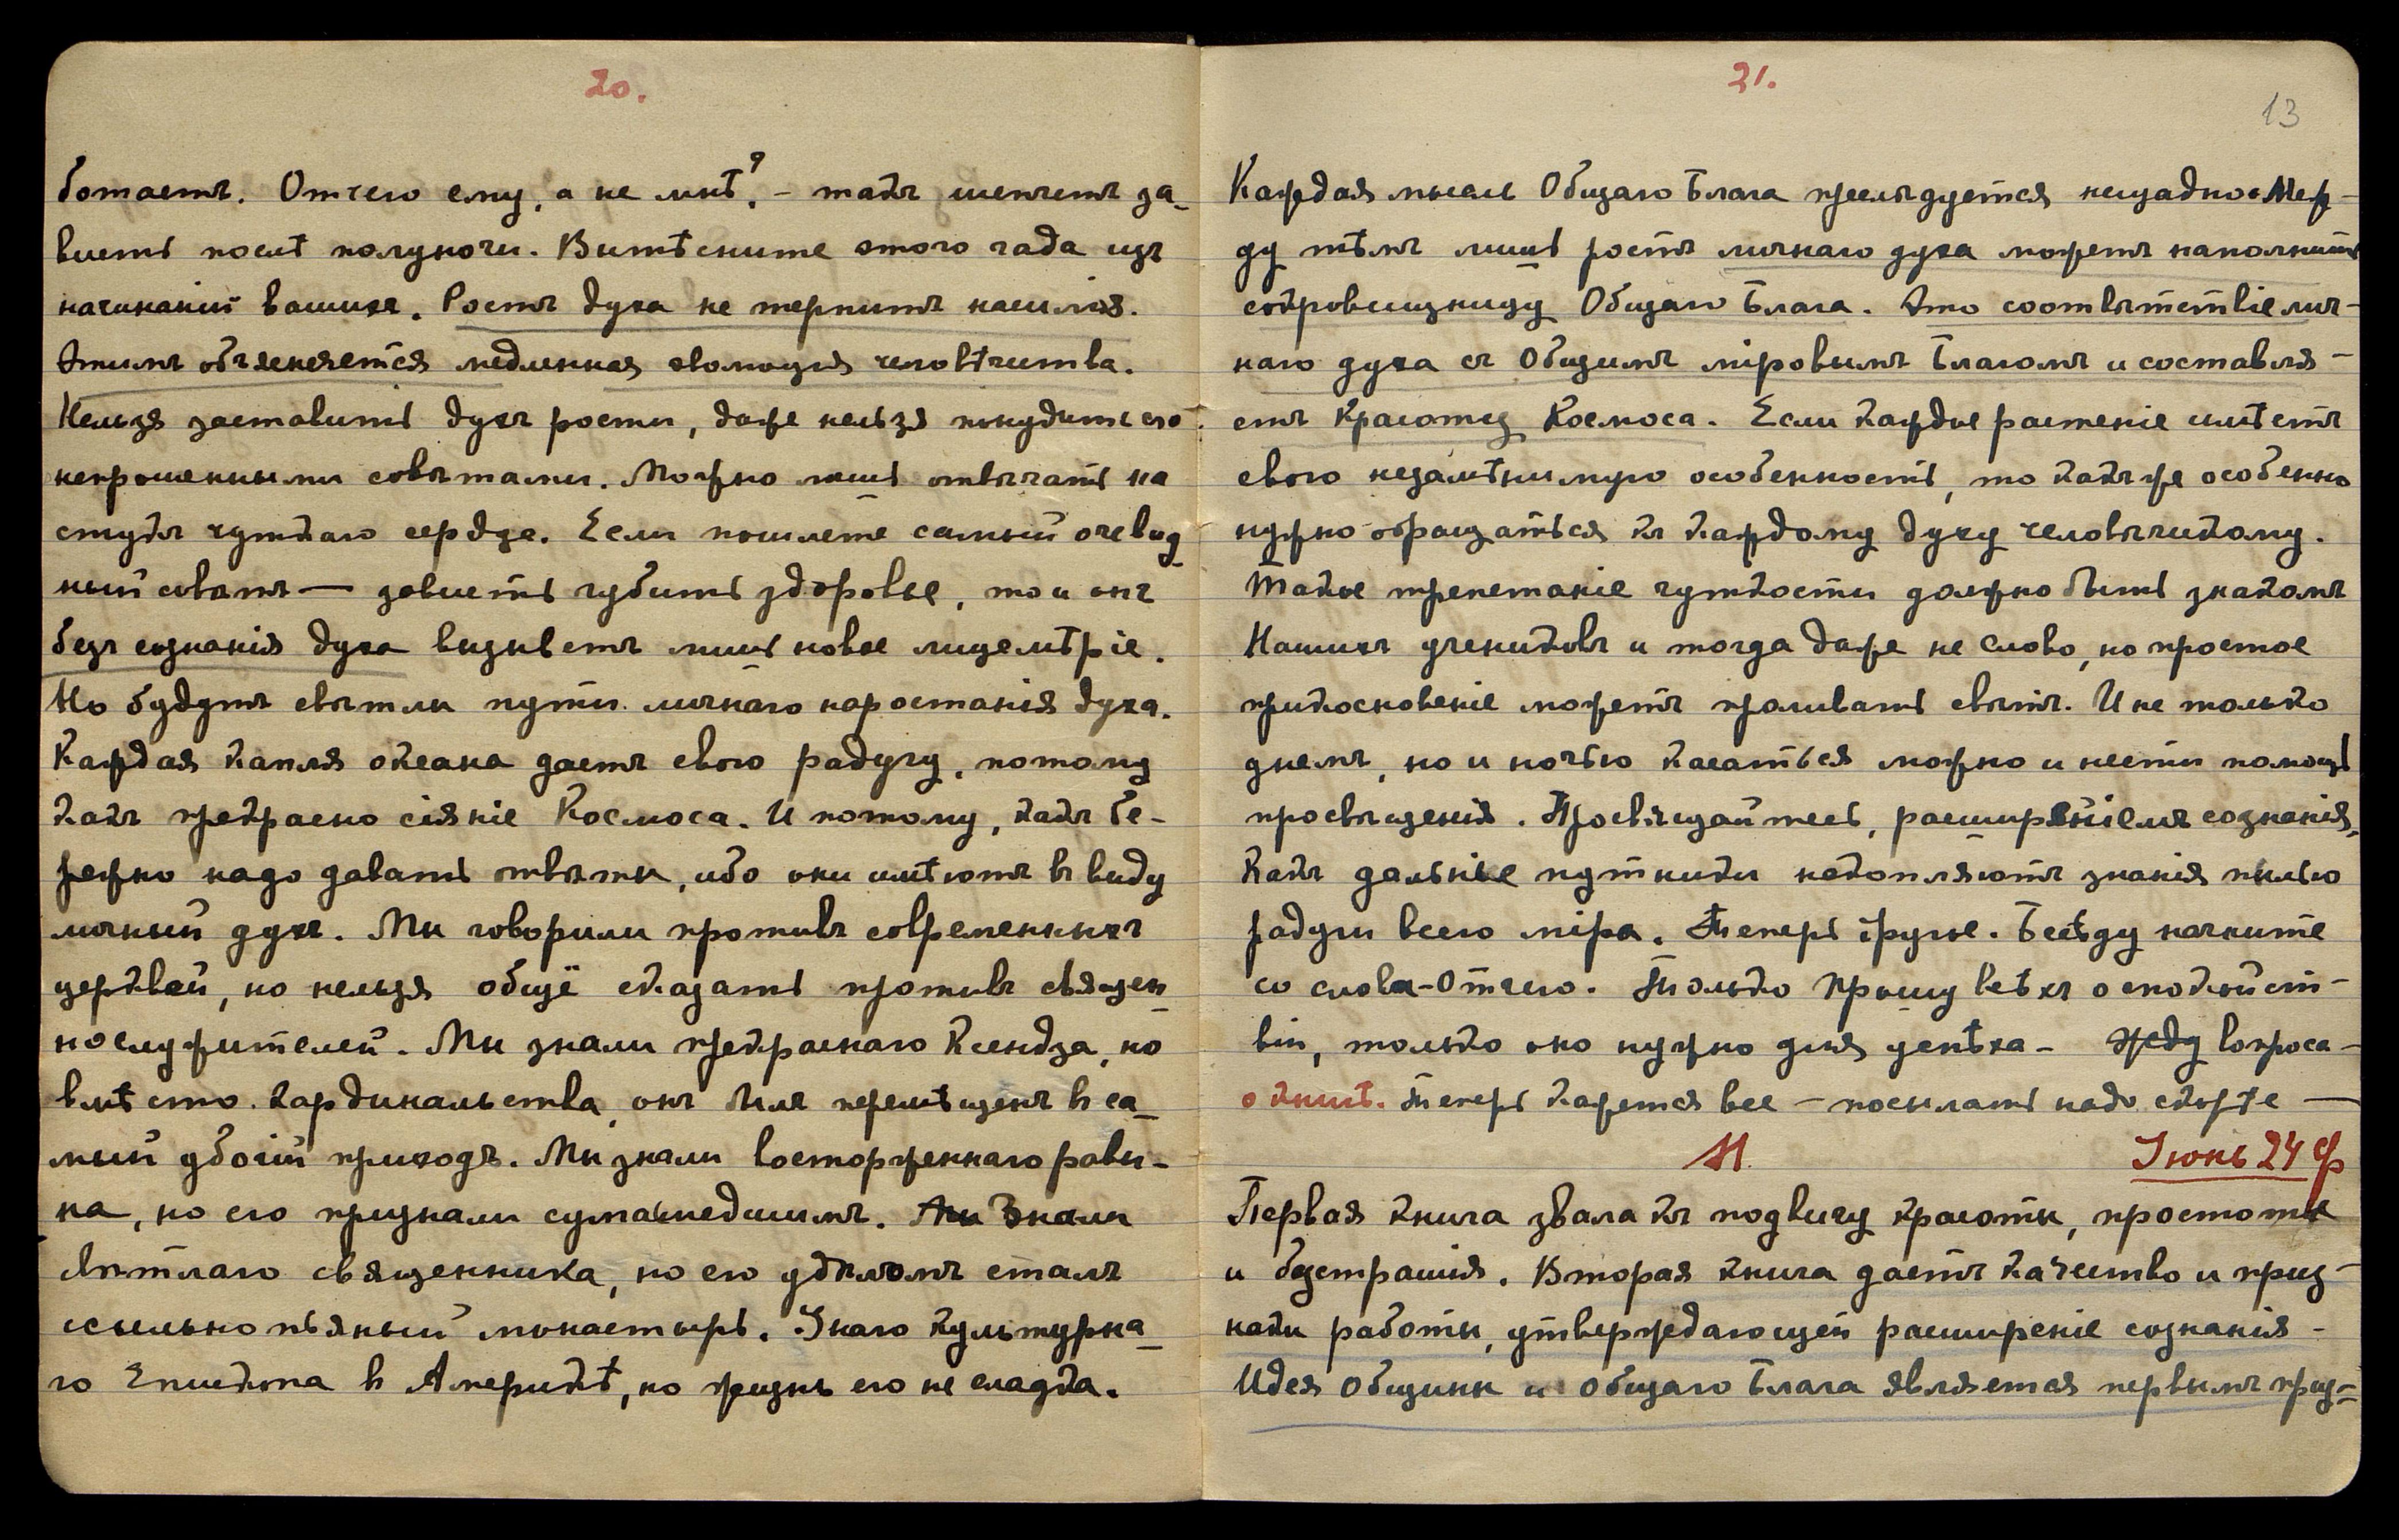 20.
ботаетъ. Отчего ему, а не мнѣ? – такъ шепчетъ за-
висть послѣ полуночи. Вытѣсните этого гада изъ
начинаній вашихъ. Ростъ духа не терпитъ насилія.
Этимъ объясняется медленная эволюція человѣчества.
Нельзя заставить духъ рости, даже нельзя понудить его
непрошенными совѣтами. Можно лишь отвѣчать на
стукъ чуткаго сердца. Если пошлете самый очевид-
ный совѣтъ — зависть губитъ здоровье, то и онъ
безъ сознанія духа вызоветъ лишь новое лицемѣріе.
Но будутъ свѣтлы пути личнаго наростанія духа.
Каждая капля океана даетъ свою радугу, потому
какъ прекрасно сіяніе Космоса. И потому, какъ бе-
режно надо давать отвѣты, ибо они имѣютъ въ виду
личный духъ. Мы говорили противъ современныхъ
церквей, но нельзя общё сказать противъ священ-
нослужителей. Мы знали прекраснаго Ксендза, но
вмѣсто кардинальства онъ былъ перемѣщенъ въ са-
мый убогій приходъ. Мы знали восторженнаго рави-
на, но его признали сумасшедшимъ. Мы Знали
свѣтлаго священника, но его удѣломъ сталъ
ссыльно пьяный монастырь. Знаю культурна-
го Епископа въ Америкѣ, но жизнь его не сладка.
21.
13
Каждая мысль Общаго Блага преслѣдуется нещадно. Меж-
ду тѣмъ лишь ростъ личнаго духа можетъ наполнить
сокровищницу Общаго Блага. Это соотвѣтствіе лич-
наго духа съ Общимъ міровымъ Благомъ и составля-
етъ Красоту Космоса. Если каждое растеніе имѣетъ
свою незамѣнимую особенность, то какъ же особенно
нужно обращаться къ каждому духу человѣческому.
Такое трепетаніе чуткости должно быть знакомъ
Нашихъ учениковъ и тогда даже не слово, но простое
прикосновеніе можетъ проливать свѣтъ. И не только
днемъ, но и ночью касаться можно и нести помощь
просвѣщенія. Просвѣщайтесь, расширеніемъ сознанія,
какъ дальніе путники накопляютъ знанія пылью
радуги всего міра. Теперь другое. Бесѣду начните
со слова-Отчего. Только прошу всѣхъ о спокойст-
віи, только оно нужно для успѣха – Жду вопроса –
о книгѣ. Теперь кажется все – посылать надо скорѣе —
М. Іюнь 24 Ф
Первая книга звала къ подвигу красоты, простоты
и безстрашія. Вторая книга даетъ качество и приз-
наки работы, утверждающей расширеніе сознанія –
Идея Общины и Общаго Блага является первымъ приз-